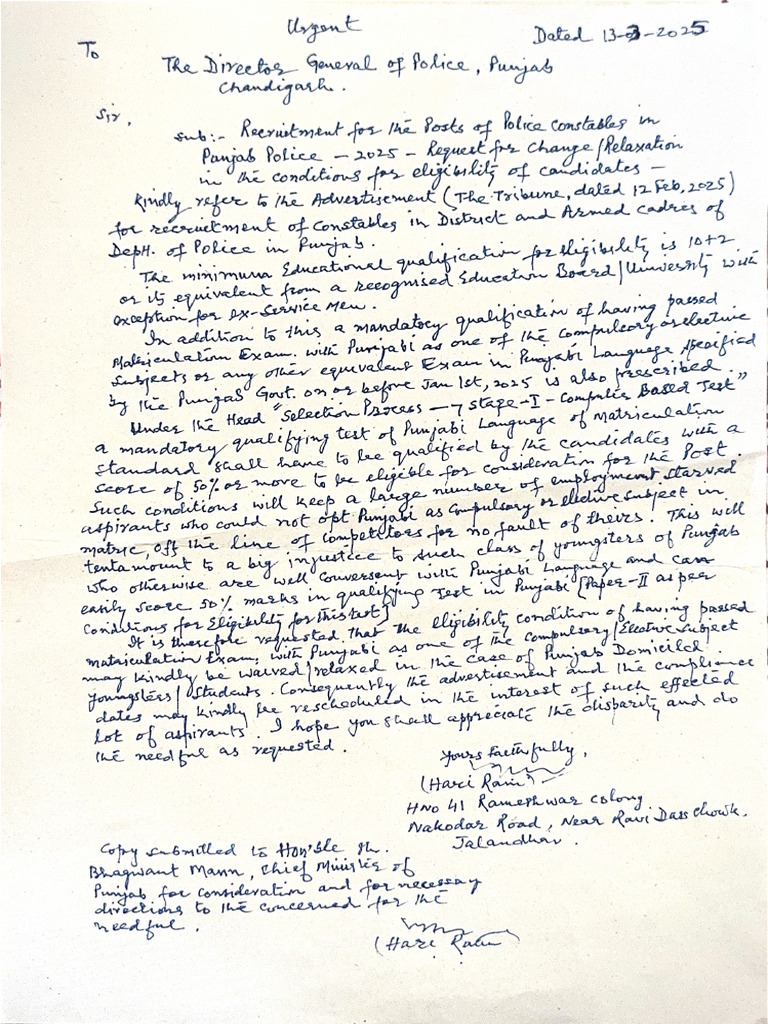 Urgent
Dated 13-3-2025
To
The Director General of Police, Punjab
Chandigarh.
Sir,
Sub:- Recruitment for the Posts of Police Constables in
Punjab Police - 2025 - Request for Change/Relaxation
in the conditions for eligibility of candidates -
Kindly refer to the Advertisement (The Tribune, dated 12 Feb, 2025)
for recruitment of Constables in District and Armed cadres of
Deptt. of Police in Punjab.
The minimum Educational qualification for Eligibility is 10+2
or its equivalent from a recognised Education Board/University with
exception for ex-Service Men.
In addition to this a mandatory qualification of having passed
Matriculation Exam. with Punjabi as one of the Compulsory or elective
Subjects or any other equivalent Exam in Punjabi Language specified
by the Punjab Govt. on or before Jan 1st, 2025 is also prescribed.
Under the Head "Selection Process — 7 Stage-I - Computer Based Test"
a mandatory qualifying test of Punjabi Language of Matriculation
Standard shall have to be qualified by the candidates with a
score of 50% or more to be eligible for consideration for the Post.
Such conditions will keep a large number of employment starved
aspirants who could not opt Punjabi as Compulsory or elective subject in
matric, off the line of competitors for no fault of theirs. This will
tentamount to a big injustice to such class of youngsters of Punjab
who otherwise are well conversent with Punjabi Language and can
easily score 50% marks in qualifying Test in Punjabi [Paper-II as per
Conditions for Eligibility for this test]
It is therefore requested that the eligibility condition of having passed
matriculation Exam; with Punjabi as one of the Compulsory/Elective subject
may kindly be waived/relaxed in the case of Punjab Domiciled
youngsters/students. Consequently the advertisement and the compliance
dates may kindly be rescheduled in the interest of such effected
lot of aspirants. I hope you shall appreciate the disparity and do
the needful as requested.
Yours faithfully,
(Hari Ram)
HNo 41 Rameshwar Colony
Nakodar Road, Near Ravi Dass Chowk.
Jalandhar.
Copy submitted to Hon'ble Sh.
Bhagwant Mann, Chief Minister of
Punjab for consideration and for necessary
directions to the concerned for the
needful.
(Hari Ram)